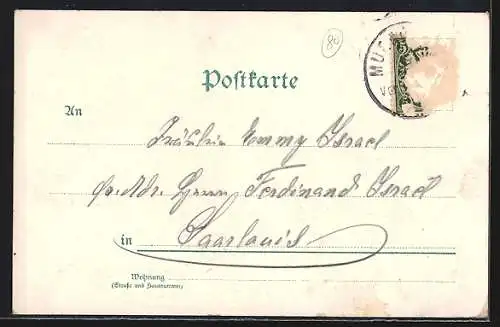 80
Postkarte
MU
VO
An
Fräulein Emmy Israel
p. Adr. Herrn Ferdinand Israel
in Saarlouis
Wohnung
(Straße und Hausnummer)